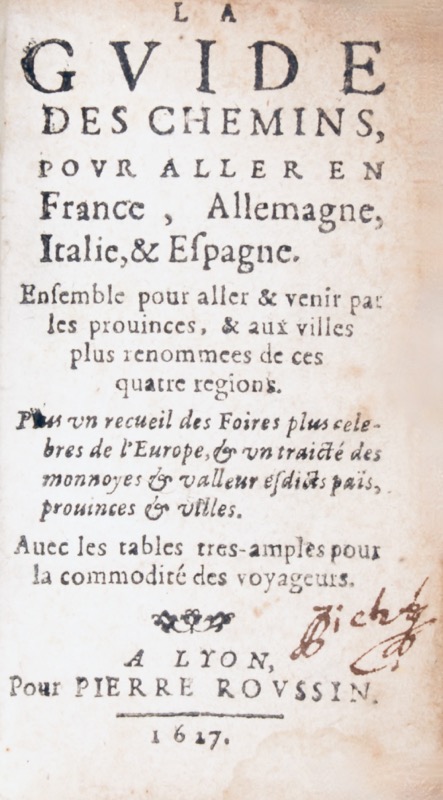 LA
GVIDE
DES CHEMINS,
POVR ALLER EN
France, Allemagne,
Italie, & Eſpagne.
Enſemble pour aller & venir par
les prouinces, & aux villes
plus renommees de ces
quatre regions.
Plus vn recueil des Foires plus cele-
bres de l'Europe, & vn traicté des
monnoyes & valleur éſdicts païs,
prouinces & villes.
Auec les tables tres-amples pour
la commodité des voyageurs.
A LYON,
Pour PIERRE ROVSSIN.
1617.